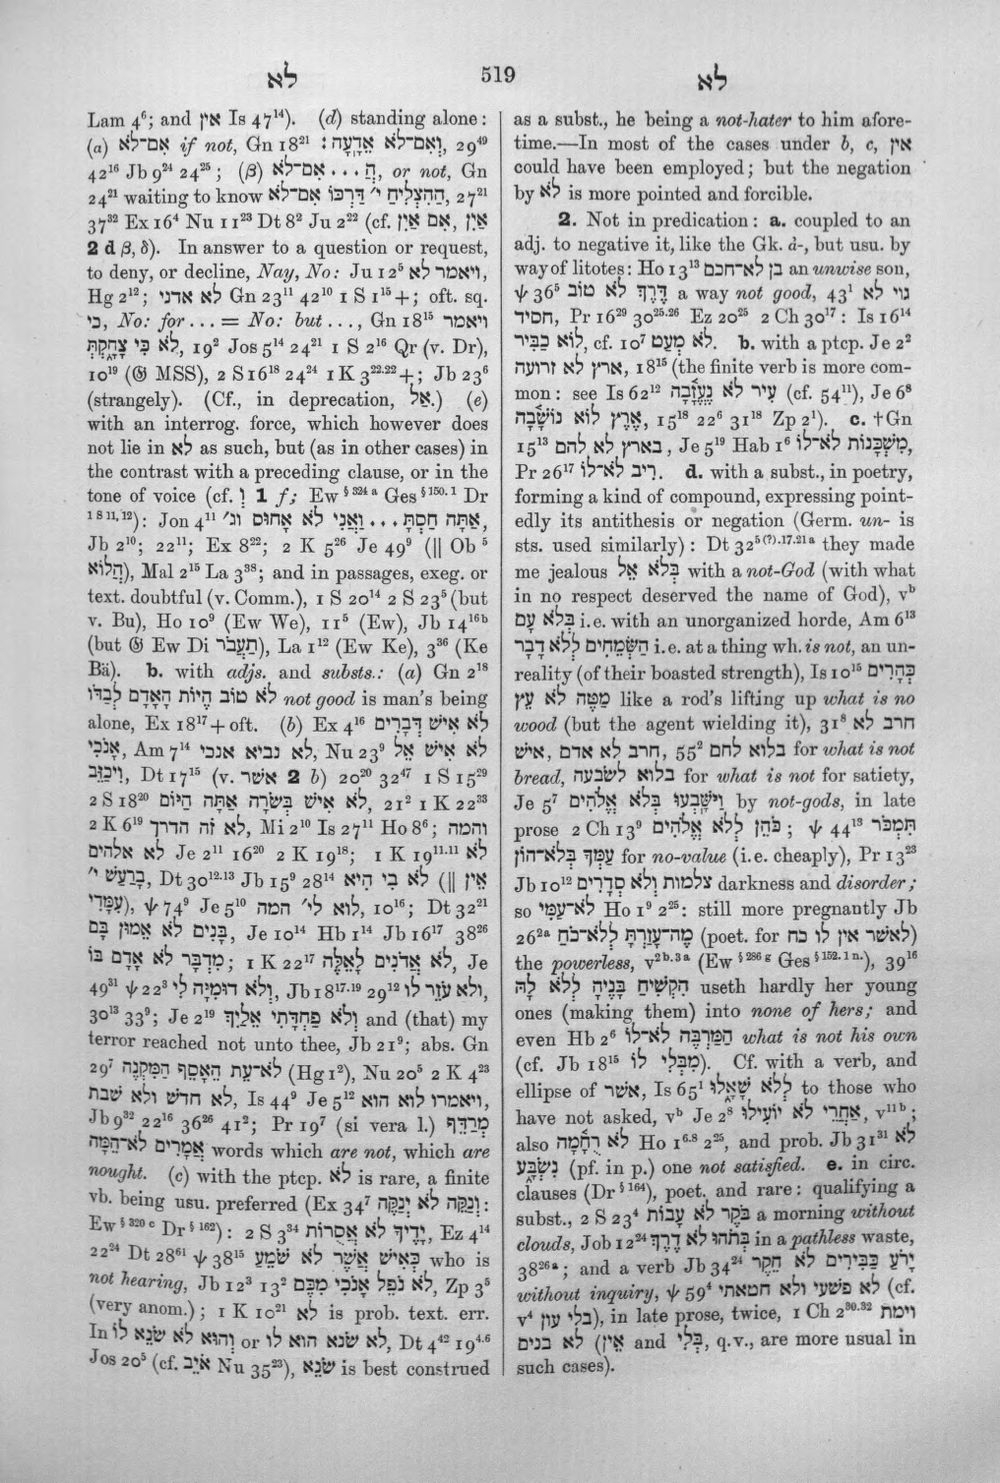 לא 519 לא
Lam 4⁶; and אין Is 47¹⁴). (d) standing alone:
(a) אִם־לֹא if not, Gn 18²¹ וְאִם־לֹא אֵדָעָה:, 29⁴⁹
42¹⁶ Jb 9²⁴ 24²⁵; (β) הֲ ... אִם־לֹא, or not, Gn
24²¹ waiting to know הַהִצְלִיחַ י״ דַּרְכּוֹ אִם־לֹא, 27²¹
37³² Ex 16⁴ Nu 11²³ Dt 8² Ju 2²² (cf. אִם אַיִן, אַיִן
2 d β, δ). In answer to a question or request,
to deny, or decline, Nay, No: Ju 12⁵ ויאמר לֹא,
Hg 2¹²; לֹא אדני Gn 23¹¹ 42¹⁰ 1 S 1¹⁵+; oft. sq.
כִּי, No: for ... = No: but ..., Gn 18¹⁵ ויאמר
לֹא כִּי צָחָקְתְּ, 19² Jos 5¹⁴ 24²¹ 1 S 2¹⁶ Qr (v. Dr),
10¹⁹ (𝔊 MSS), 2 S 16¹⁸ 24²⁴ 1 K 3²²·²²+; Jb 23⁶
(strangely). (Cf., in deprecation, אַל.) (e)
with an interrog. force, which however does
not lie in לֹא as such, but (as in other cases) in
the contrast with a preceding clause, or in the
tone of voice (cf. וְ 1 f; Ew § 324 a Ges § 150. 1 Dr
1 S 11, 12): Jon 4¹¹ אַתָּה חַסְתָּ ... וַאֲנִי לֹא אָחוּס וג׳,
Jb 2¹⁰; 22¹¹; Ex 8²²; 2 K 5²⁶ Je 49⁹ (|| Ob ⁵
הֲלוֹא), Mal 2¹⁵ La 3³⁸; and in passages, exeg. or
text. doubtful (v. Comm.), 1 S 20¹⁴ 2 S 23⁵ (but
v. Bu), Ho 10⁹ (Ew We), 11⁵ (Ew), Jb 14¹⁶ᵇ
(but 𝔊 Ew Di תַעֲבֹר), La 1¹² (Ew Ke), 3³⁶ (Ke
Bä). b. with adjs. and substs.: (a) Gn 2¹⁸
לֹא טוֹב הֱיוֹת הָאָדָם לְבַדּוֹ not good is man's being
alone, Ex 18¹⁷+oft. (b) Ex 4¹⁶ לֹא אִישׁ דְּבָרִים
אָנֹכִי, Am 7¹⁴ לֹא נביא אנכי, Nu 23⁹ לֹא אִישׁ אֵל
וִיכַזֵּב, Dt 17¹⁵ (v. אשר 2 b) 20²⁰ 32⁴⁷ 1 S 15²⁹
2 S 18²⁰ לֹא אִישׁ בְּשֹׂרָה אַתָּה הַיּוֹם, 21² 1 K 22³³
2 K 6¹⁹ לֹא זה הדרך, Mi 2¹⁰ Is 27¹¹ Ho 8⁶; והמה
לֹא אלהים Je 2¹¹ 16²⁰ 2 K 19¹⁸; 1 K 19¹¹·¹¹ לֹא
בָרַעַשׁ י״, Dt 30¹²·¹³ Jb 15⁹ 28¹⁴ לֹא בִי הִיא (|| אֵין
עִמָּדִי), ψ 74⁹ Je 5¹⁰ לוֹא לי״ המה, 10¹⁶; Dt 32²¹
בָּנִים לֹא אֵמוּן בָּם, Je 10¹⁴ Hb 1¹⁴ Jb 16¹⁷ 38²⁶
מִדְבָּר לֹא אָדָם בּוֹ; 1 K 22¹⁷ לֹא אֲדֹנִים לָאֵלֶּה, Je
49³¹ ψ 22³ וְלֹא דוּמִיָּה לִי, Jb 18¹⁷·¹⁹ 29¹² ולֹא עֹזֵר לוֹ,
30¹³ 33⁹; Je 2¹⁹ וְלֹא פַחְדָּתִי אֵלַיִךְ and (that) my
terror reached not unto thee, Jb 21⁹; abs. Gn
29⁷ לֹא־עֵת הֵאָסֵף הַמִּקְנֶה (Hg 1²), Nu 20⁵ 2 K 4²³
לֹא חדש ולא שבת, Is 44⁹ Je 5¹² ויאמרו לוא הוא,
Jb 9³² 22¹⁶ 36²⁶ 41²; Pr 19⁷ (si vera l.) מְרַדֵּף
אֲמָרִים לֹא־הֵמָּה words which are not, which are
nought. (c) with the ptcp. לֹא is rare, a finite
vb. being usu. preferred (Ex 34⁷ וְנַקֵּה לֹא יְנַקֶּה:
Ew § 320 c Dr § 162): 2 S 3³⁴ יָדֶיךָ לֹא אֲסֻרוֹת, Ez 4¹⁴
22²⁴ Dt 28⁶¹ ψ 38¹⁵ כְּאִישׁ אֲשֶׁר לֹא שֹׁמֵעַ who is
not hearing, Jb 12³ 13² לֹא נֹפֵל אָנֹכִי מִכֶּם, Zp 3⁵
(very anom.); 1 K 10²¹ לֹא is prob. text. err.
In וְהוּא לֹא שֹׂנֵא לוֹ or לֹא שֹׂנא הוא לו, Dt 4⁴² 19⁴·⁶
Jos 20⁵ (cf. אֹיֵב Nu 35²³), שֹׂנֵא is best construed
as a subst., he being a not-hater to him afore-
time.—In most of the cases under b, c, אַיִן
could have been employed; but the negation
by לֹא is more pointed and forcible.
2. Not in predication: a. coupled to an
adj. to negative it, like the Gk. ἀ-, but usu. by
way of litotes: Ho 13¹³ בֵן לֹא־חכם an unwise son,
ψ 36⁵ דֶּרֶךְ לֹא טוֹב a way not good, 43¹ גוי לֹא
חסיד, Pr 16²⁹ 30²⁵·²⁶ Ez 20²⁵ 2 Ch 30¹⁷: Is 16¹⁴
לוֹא כַבִּיר, cf. 10⁷ לֹא מְעָט. b. with a ptcp. Je 2²
ארץ לֹא זרועה, 18¹⁵ (the finite verb is more com-
mon: see Is 62¹² עיר לֹא נֶעֱזָבָה (cf. 54¹¹), Je 6⁸
אֶרֶץ לוֹא נוֹשָׁבָה, 15¹⁸ 22⁶ 31¹⁸ Zp 2¹). c. †Gn
15¹³ בארץ לֹא להם, Je 5¹⁹ Hab 1⁶ מִשְׁכָּנוֹת לֹא־לוֹ,
Pr 26¹⁷ רִיב לֹא־לוֹ. d. with a subst., in poetry,
forming a kind of compound, expressing point-
edly its antithesis or negation (Germ. un- is
sts. used similarly): Dt 32⁵⁽?⁾·¹⁷·²¹ᵃ they made
me jealous בְּלֹא אֵל with a not-God (with what
in no respect deserved the name of God), vᵇ
בְּלֹא עָם i.e. with an unorganized horde, Am 6¹³
הַשְּׂמֵחִים לְלֹא דָבָר i.e. at a thing wh. is not, an un-
reality (of their boasted strength), Is 10¹⁵ כְּהָרִים
מַטֶּה לֹא עֵץ like a rod's lifting up what is no
wood (but the agent wielding it), 31⁸ חרב לֹא
איש, חרב לֹא אדם, 55² בלוא לחם for what is not
bread, בלוא לשבעה for what is not for satiety,
Je 5⁷ וַיִּשָּׁבְעוּ בְּלֹא אֱלֹהִים by not-gods, in late
prose 2 Ch 13⁹ כֹּהֵן לְלֹא אֱלֹהִים; ψ 44¹³ תִּמְכֹּר
עַמְּךָ בְלֹא־הוֹן for no-value (i.e. cheaply), Pr 13²³
Jb 10¹² צלמות וְלֹא סְדָרִים darkness and disorder;
so לֹא־עַמִּי Ho 1⁹ 2²⁵: still more pregnantly Jb
26²ᵃ מֶה־עָזַרְתָּ לְלֹא־כֹחַ (poet. for לאשר אין לו כח)
the powerless, v²ᵇ·³ᵃ (Ew § 286 g Ges § 152. 1 n.), 39¹⁶
הִקְשִׁיחַ בָּנֶיהָ לְּלֹא לָהּ useth hardly her young
ones (making them) into none of hers; and
even Hb 2⁶ הַמַּרְבֶּה לֹא־לוֹ what is not his own
(cf. Jb 18¹⁵ מִבְּלִי לוֹ). Cf. with a verb, and
ellipse of אשר, Is 65¹ לְלֹא שָׁאָלוּ to those who
have not asked, vᵇ Je 2⁸ אַחֲרֵי לֹא יוֹעִילוּ, v¹¹ᵇ;
also לֹא רֻחָמָה Ho 1⁶·⁸ 2²⁵, and prob. Jb 31³¹ לֹא
נִשְׂבָּע (pf. in p.) one not satisfied. e. in circ.
clauses (Dr § 164), poet. and rare: qualifying a
subst., 2 S 23⁴ בֹּקֶר לֹא עָבוֹת a morning without
clouds, Job 12²⁴ בְּתֹהוּ לֹא דָרֶךְ in a pathless waste,
38²⁶ᵃ; and a verb Jb 34²⁴ יָרֹעַ כַּבִּירִים לֹא חֵקֶר
without inquiry, ψ 59⁴ לֹא פשעי ולא חטאתי (cf.
v⁴ בלי עון), in late prose, twice, 1 Ch 2³⁰·³² וימת
לֹא בנים (אֵין and בְּלִי, q.v., are more usual in
such cases).